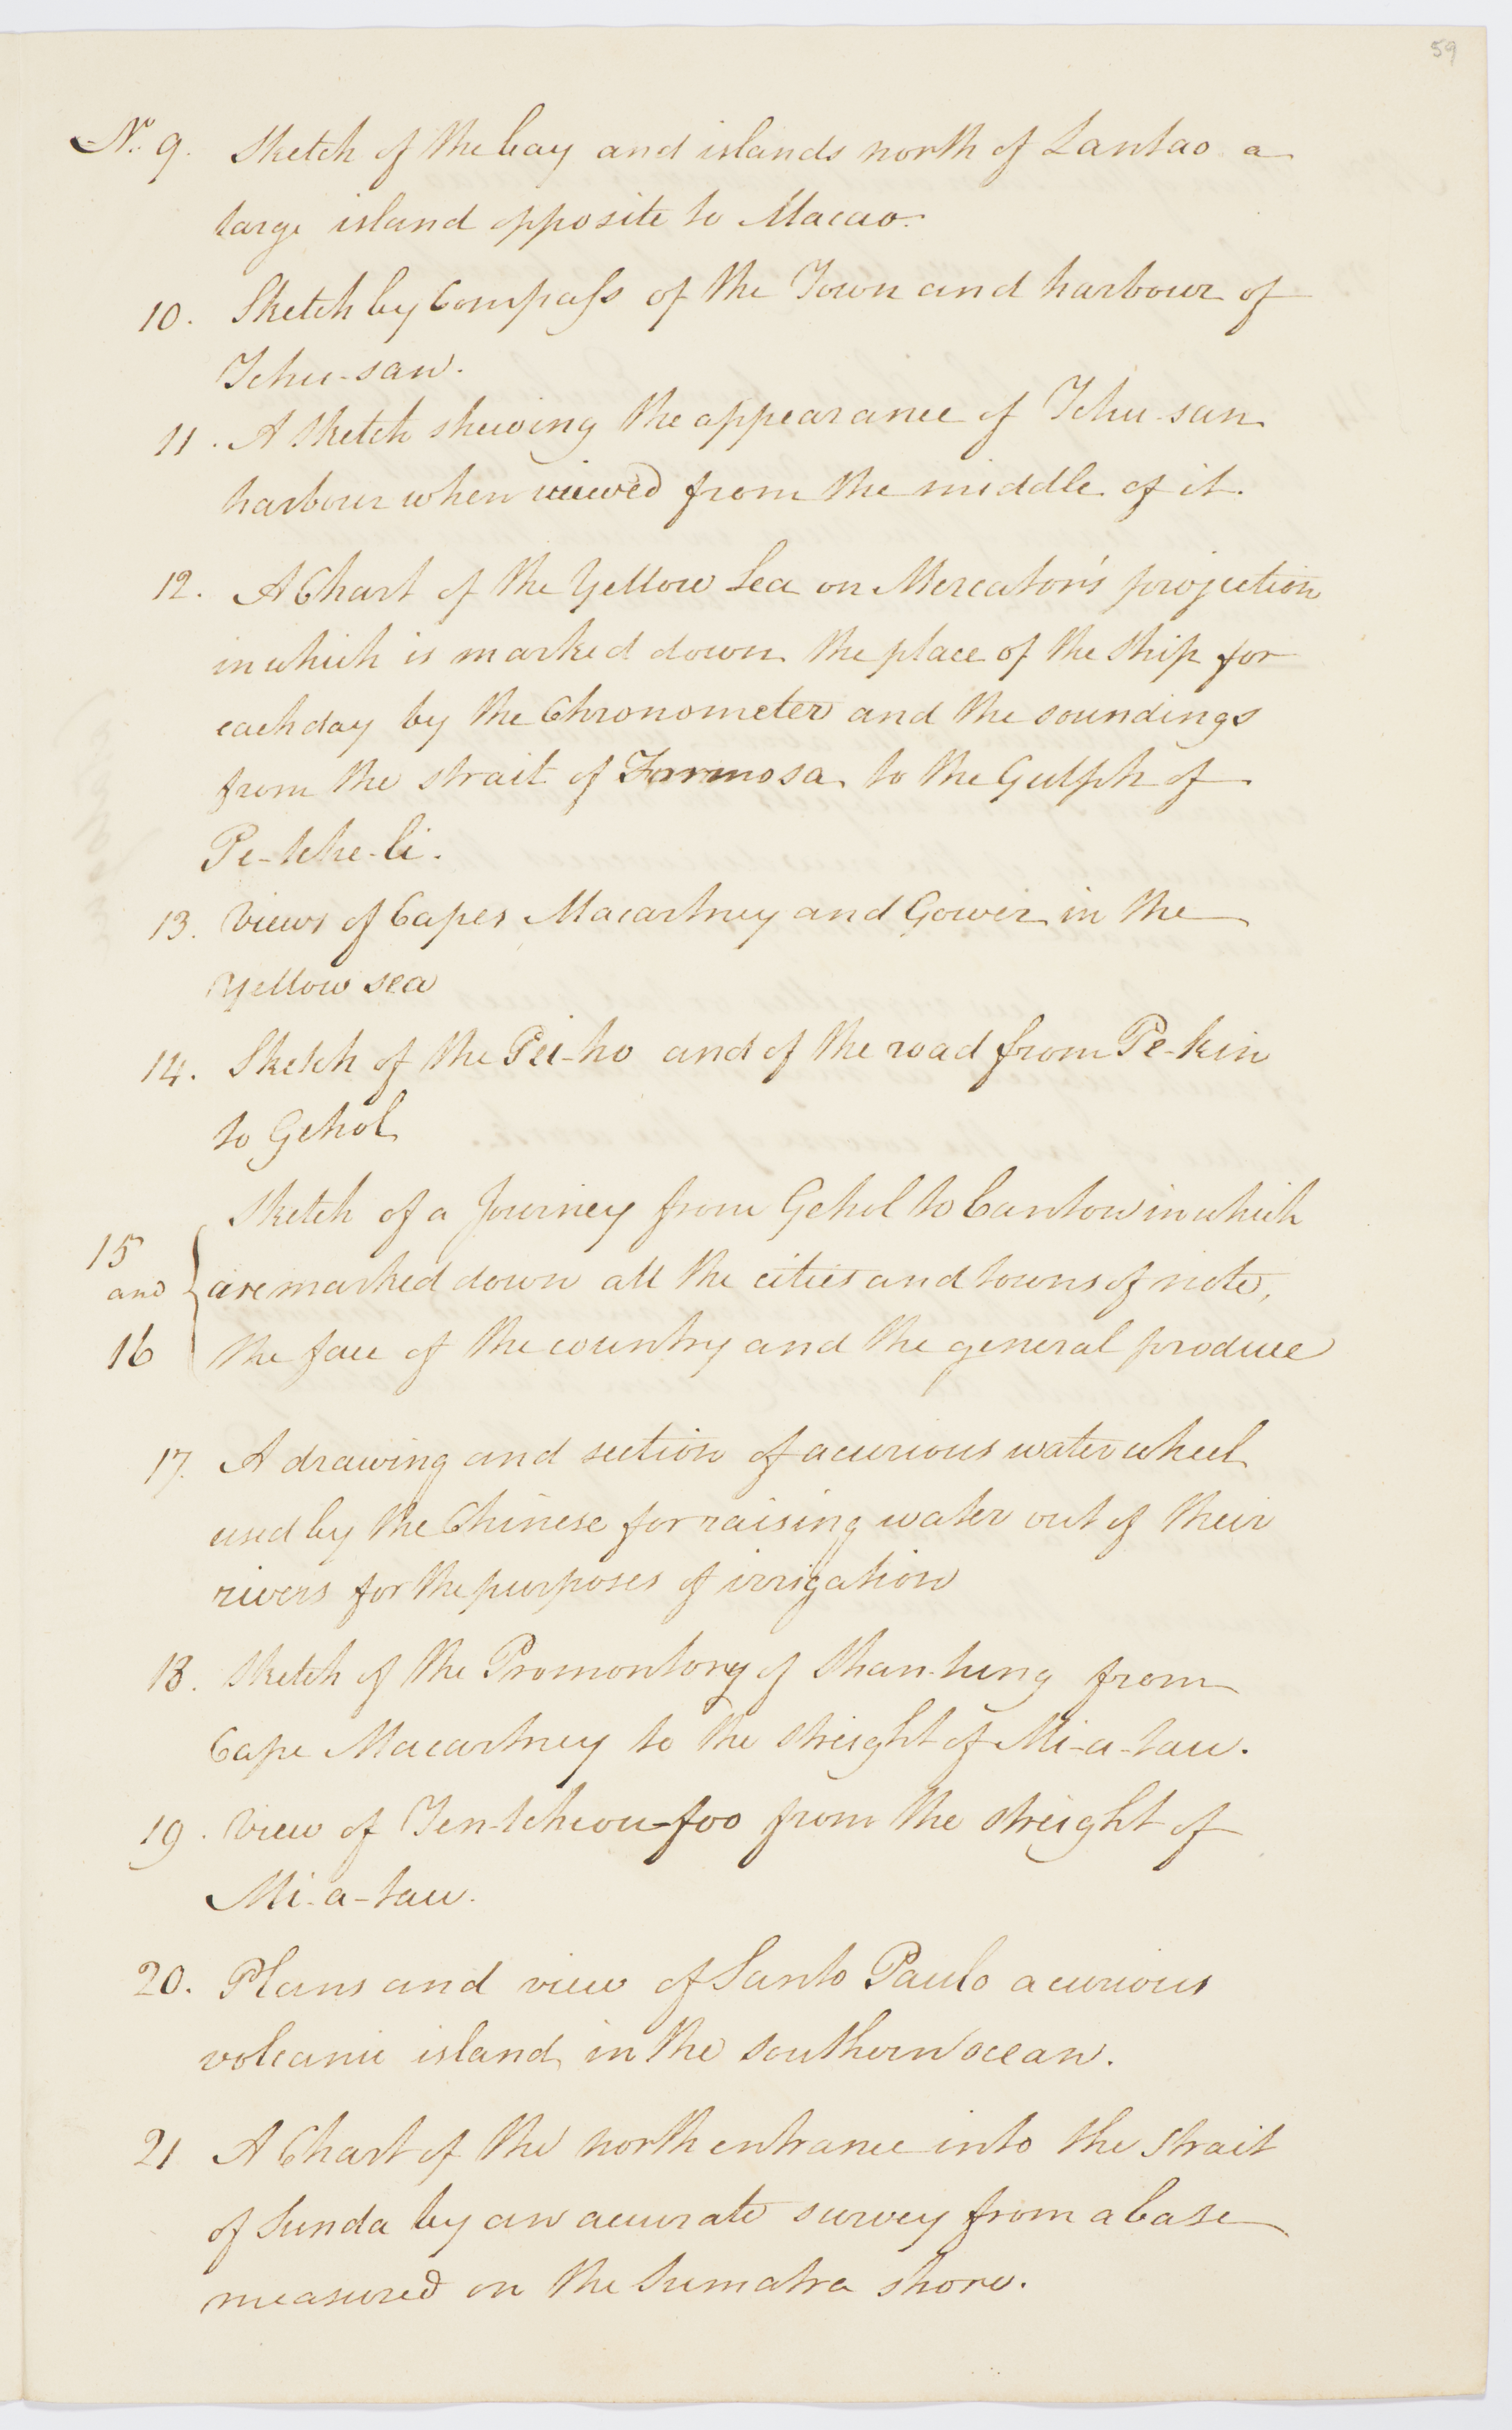 59
No. 9. Sketch of the bay and islands north of Lantao a
large island opposite to Macao.
10. Sketch by Compaſs of the Town and harbour of
Tchu-san.
11. A Sketch shewing the appearance of Tchu-san
harbour when viewed from the middle of it.
12. A Chart of the Yellow Sea on Mercator's projection
in which is marked down the place of the Ship for
each day by the Chronometer and the soundings
from the strait of Formosa to the Gulph of
Pe-tche-li.
13. Views of Capes Macartney and Gower in the
Yellow sea
14. Sketch of the Pei-ho and of the road from Pe-kin
to Gehol
Sketch of a Journey from Gehol to Canton in which
15
and are marked down all the cities and towns of note,
16 the face of the country and the general produce
17. A drawing and section of a curious water wheel
used by the Chinese for raising water out of their
rivers for the purposes of irrigation
18. Sketch of the Promontory of Shan-tung from
Cape Macartney to the streight of Mi-a-tau.
19. View of Ten-tcheou-foo from the streight of
Mi-a-tau.
20. Plans and view of Santo Paulo a curious
volcanic island in the southern ocean.
21 A Chart of the north entrance into the Strait
of Sunda by an accurate survey from a base
measured on the Sumatra shore.